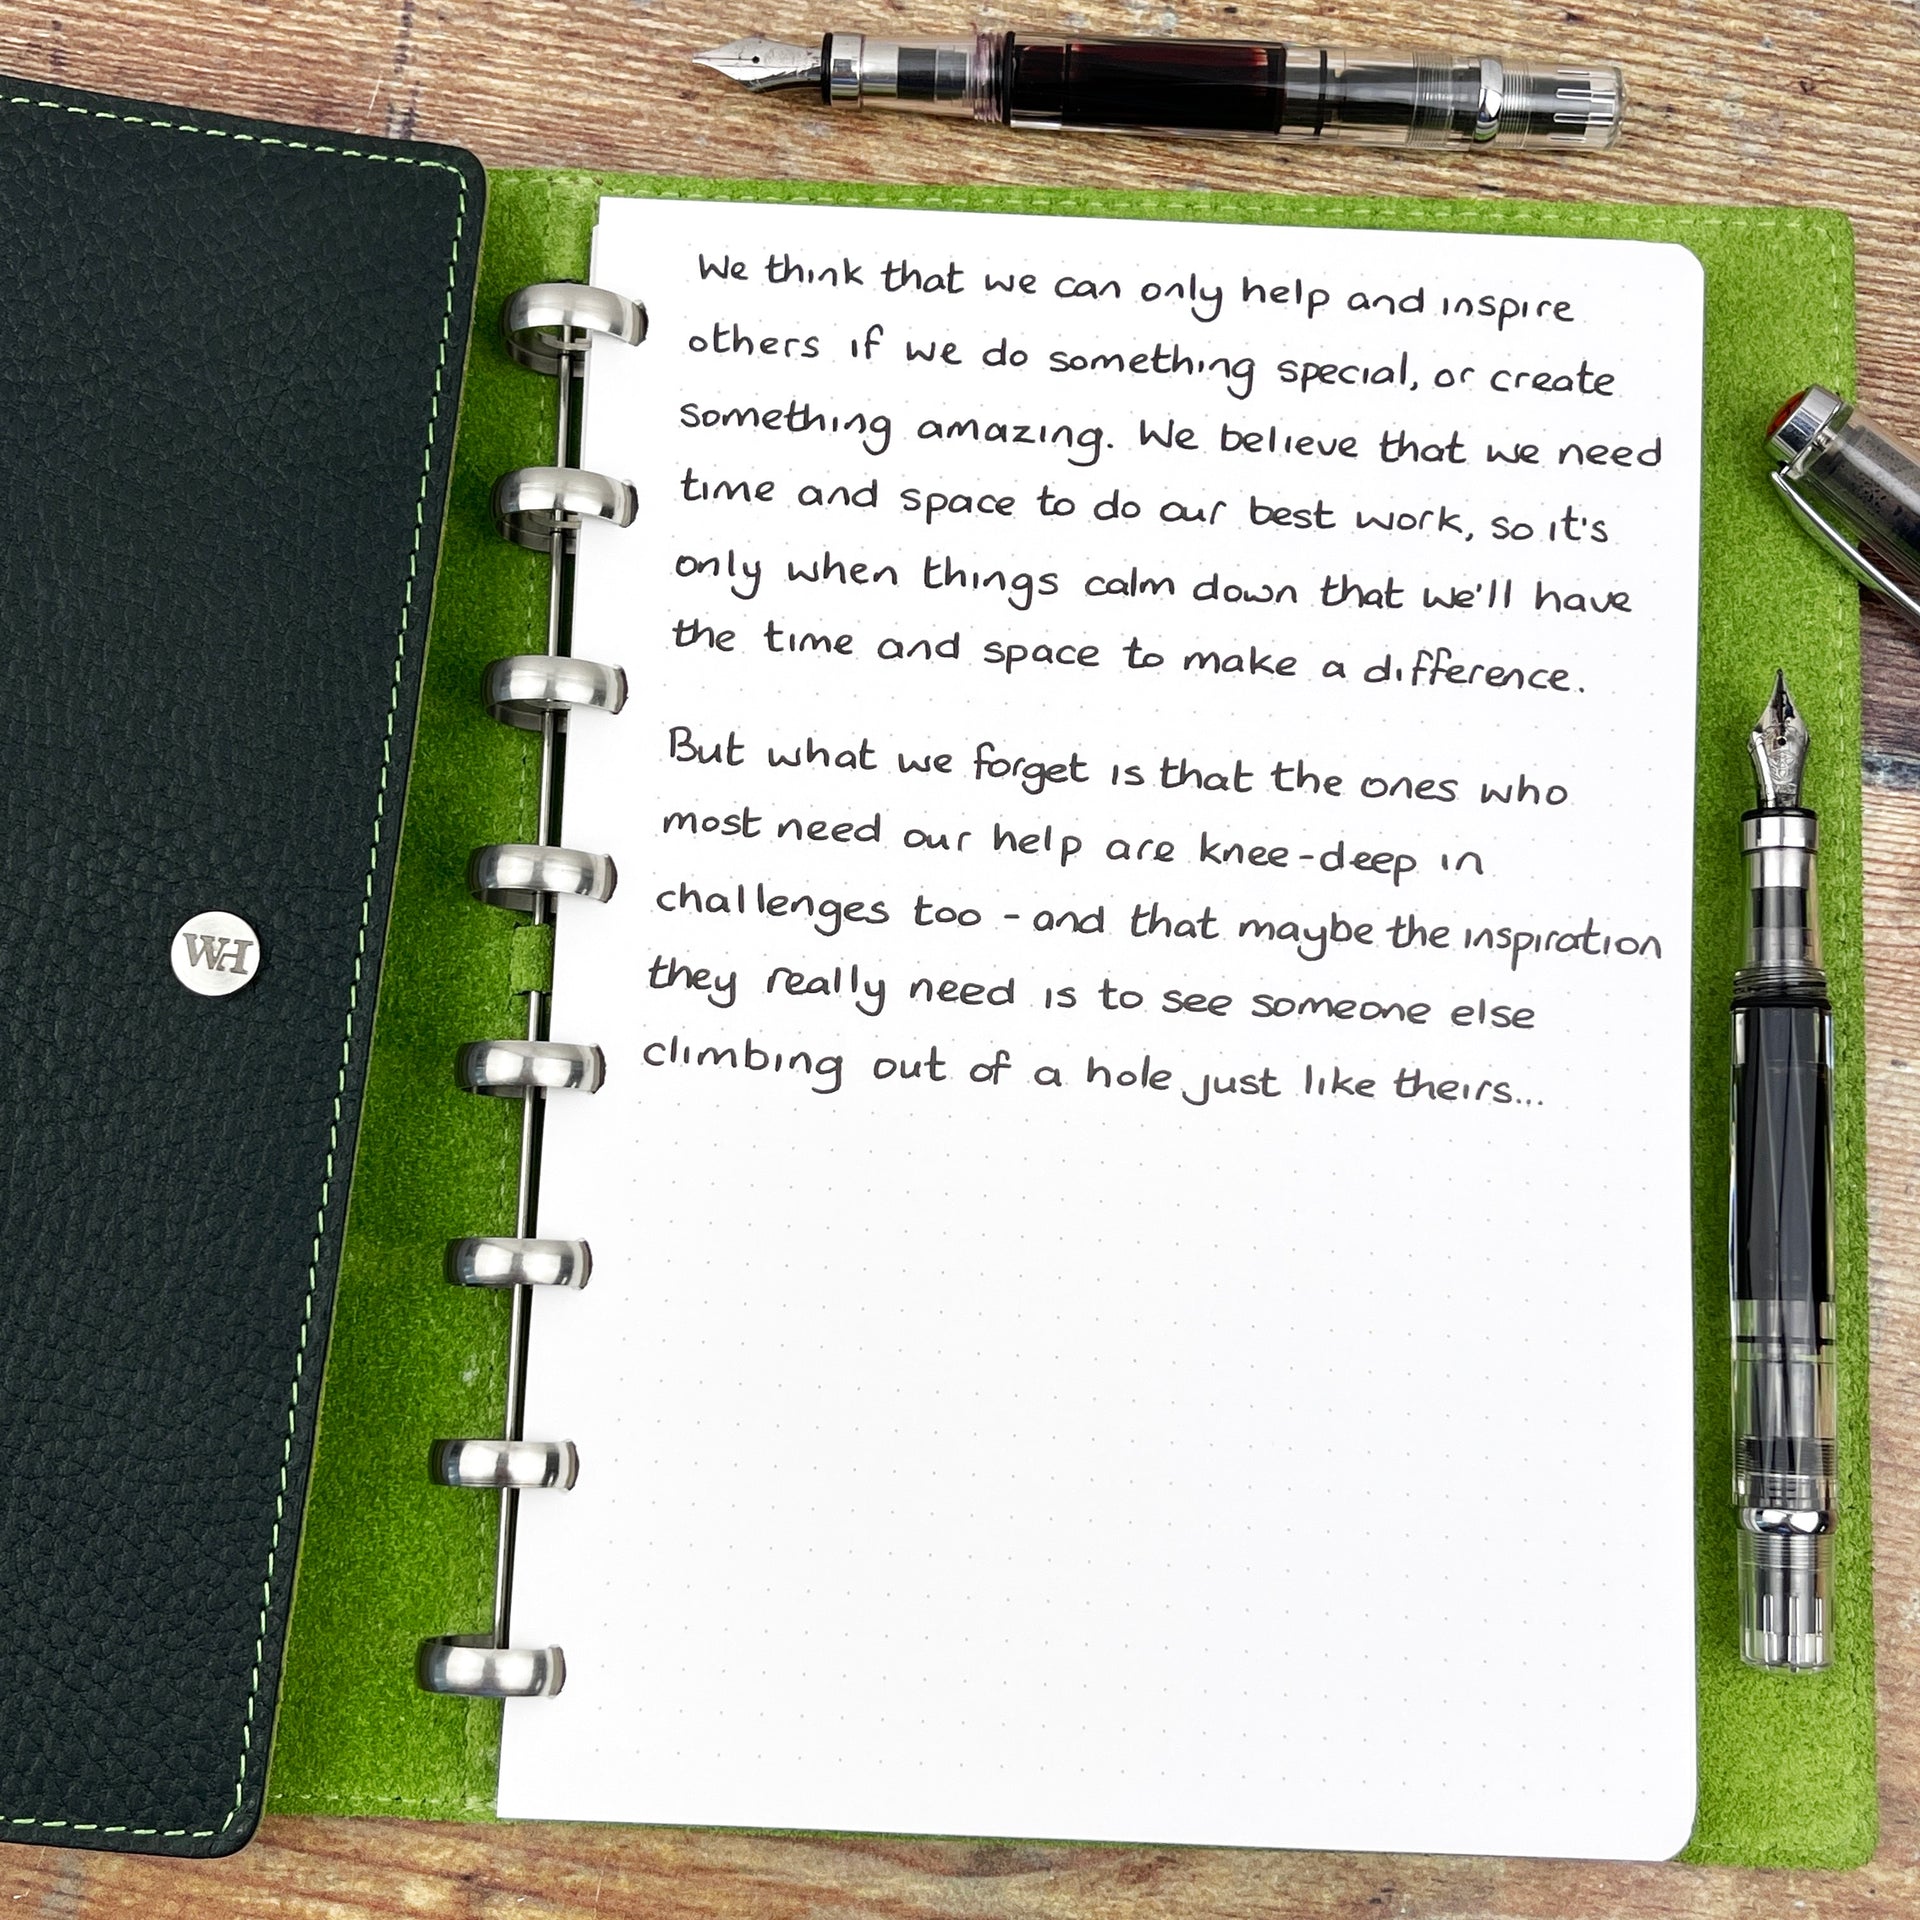 We think that we can only help and inspire
others if we do something special, or create
something amazing. We believe that we need
time and space to do our best work, so it's
only when things calm down that we'll have
the time and space to make a difference.
But what we forget is that the ones who
most need our help are knee-deep in
challenges too - and that maybe the inspiration
they really need is to see someone else
climbing out of a hole just like theirs...
WH